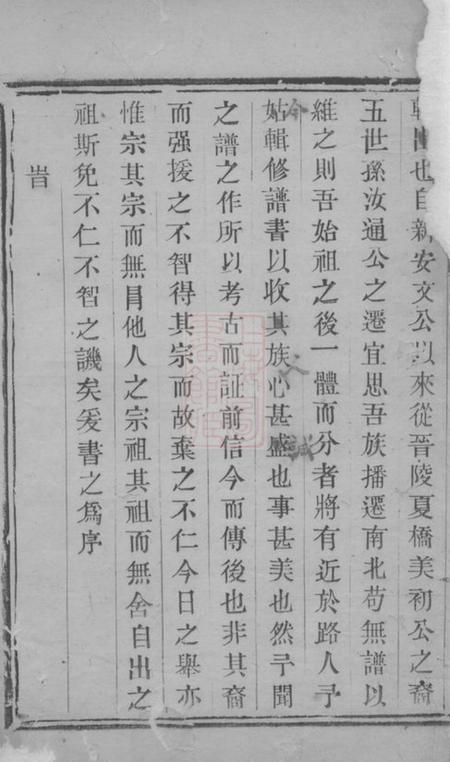 也自新安文公以來從晉陵夏橋美初公之裔
五世孫汝通公之遷宜思吾族播遷南北苟無譜以
維之則吾始祖之後一體而分者將有近於路人予
姑輯修譜書以收其族心甚盛也事甚美也然予聞
之譜之作所以考古而証前信今而傳後也非其裔
而强援之不智得其宗而故棄之不仁今日之舉亦
惟宗其宗而無冐他人之宗祖其祖而無舍自出之
祖斯免不仁不智之譏矣爰書之爲序
旹